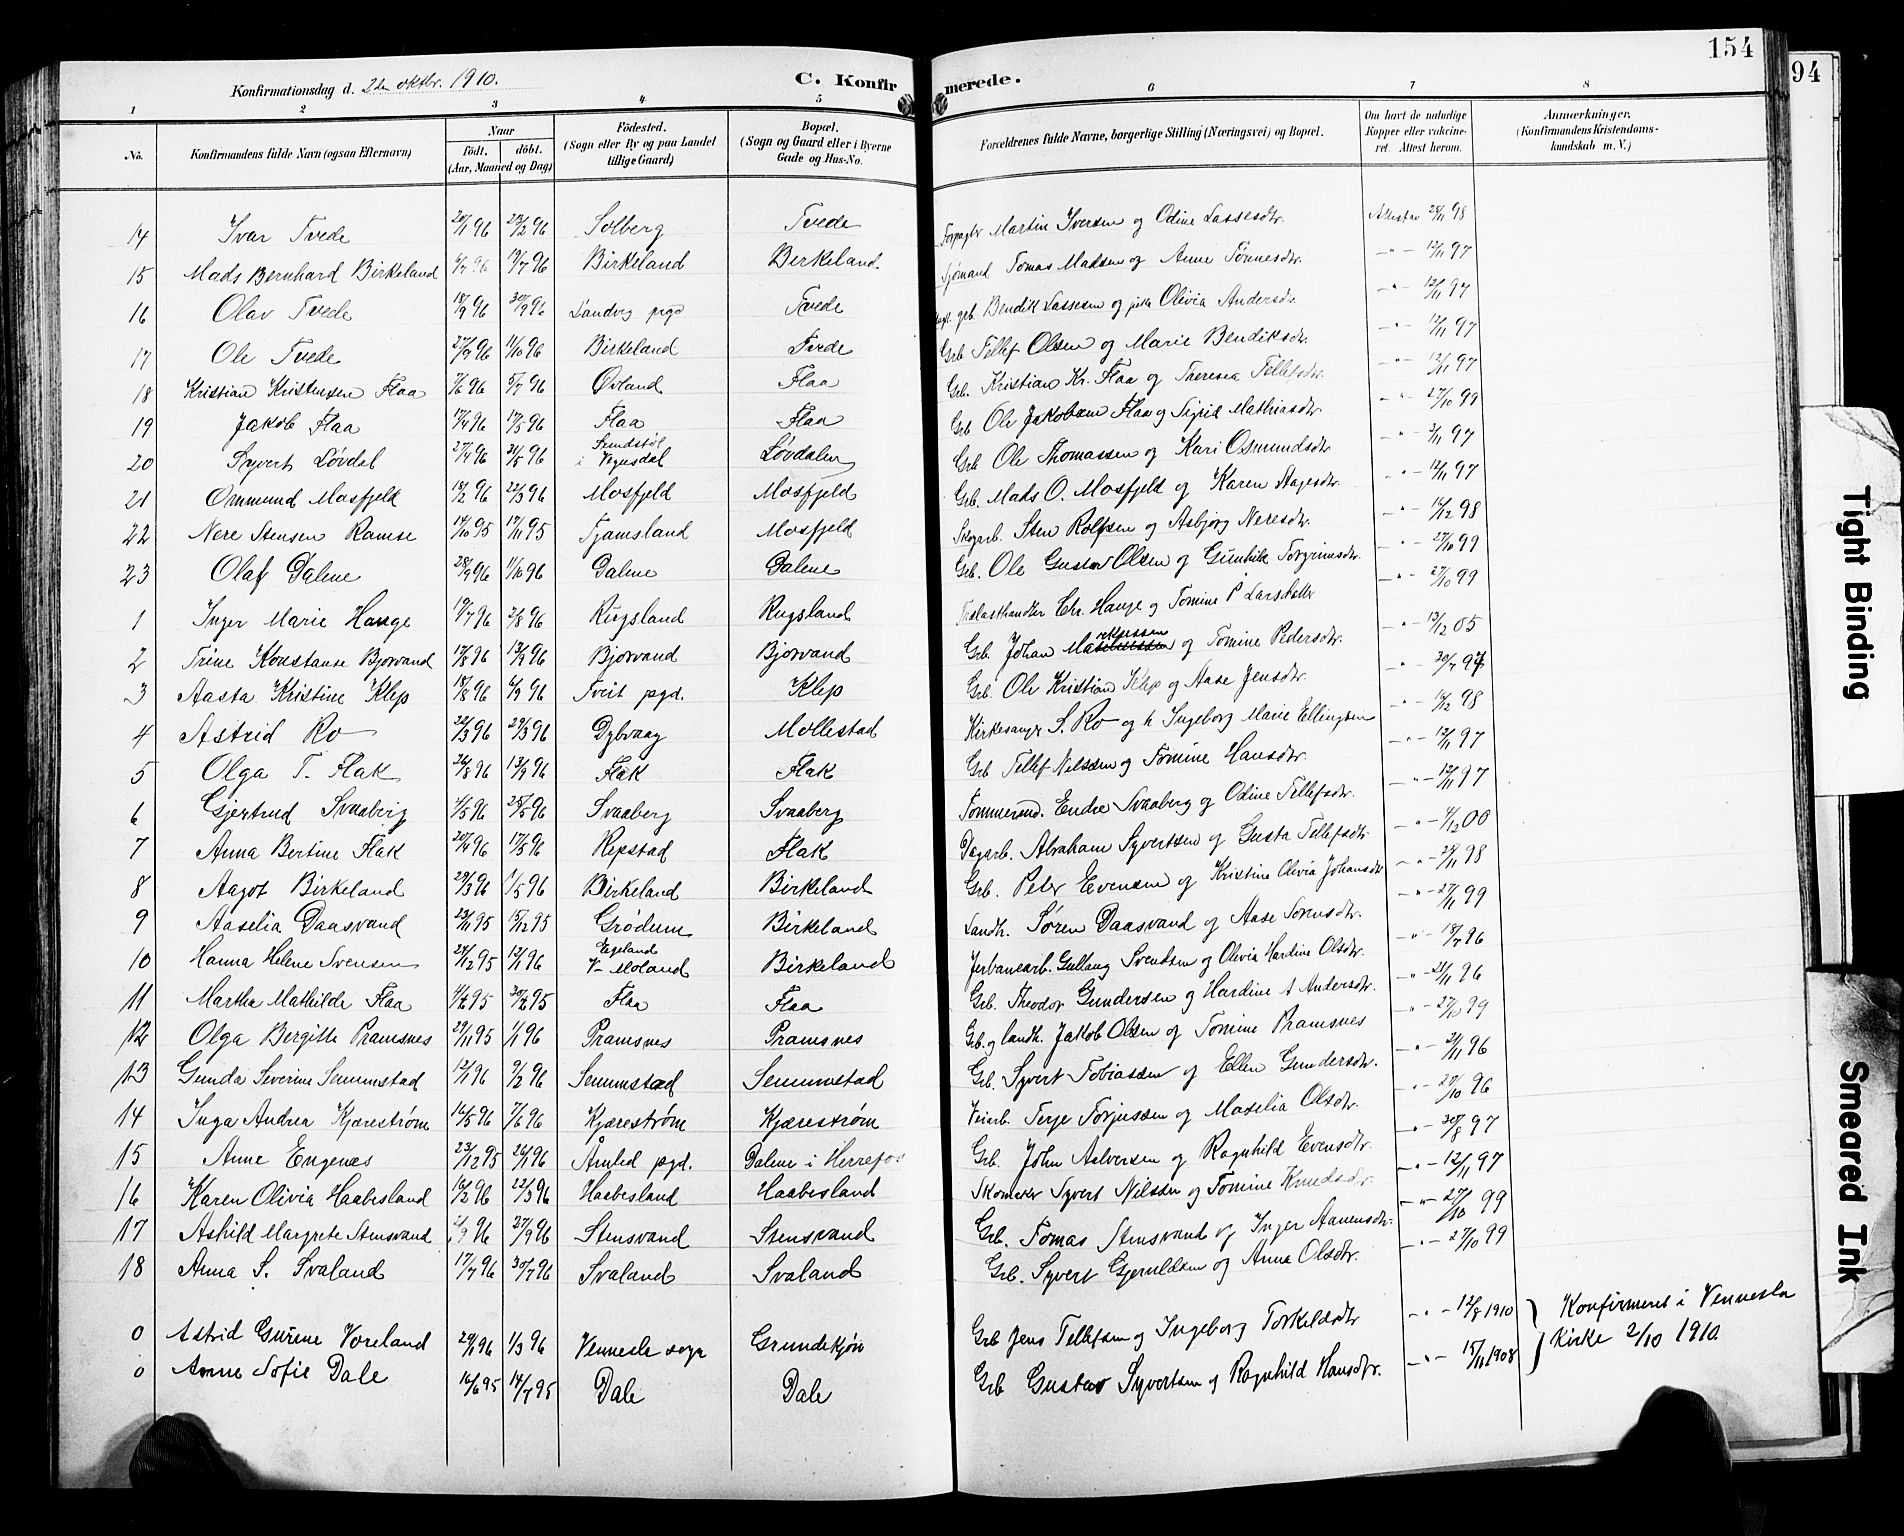 154
94
Konfirmationsdag d. 2den oktbr. 1910.
C. Konfirmerede.
1 2 3 4 5 6 7 8
No. Konfirmandens fulde Navn (ogsaa Efternavn) Naar födt. döbt. (Aar, Maaned og Dag) Födested. (Sogn eller By og paa Landet tillige Gaard) Bopæl. (Sogn og Gaard eller i Byerne Gade og Hus-No. Forældrenes fulde Navne, borgerlige Stilling (Næringsvei) og Bopæl. Om havt de naturlige Kopper eller vakcineret. Attest herom. Anmærkninger. (Konfirmandens Kristendomskundskab m. V.)
14 Ivar Tvede 20/1 96 23/2 96 Solberg Tvede Forpagter Martin Iversen og Odine Lassesdtr. Attestav 25/11 98
15 Mads Bernhard Birkeland 96 19/7 96 Birkeland Birkeland. Sjømand Tomas Madsen og Anne Tønnesdtr. -"- 12/11 97
16 Olav Tvede 18/9 96 30/9 96 Landvig prgd Tvede grb. Bendik Lassesen og Olivia Andersdtr. -"- 12/11 97
17 Ole Tvede 27/9 96 11/10 96 Birkeland Tvede Grb Tellef Olsen og Marie Bendiksdtr. -"- 12/11 97
18 Kristian Kristensen Flaa 7/6 96 5/7 96 Øvland Flaa Grb. Kristian Kr. Flaa og Theresia Tellefsdtr. -"- 12/11 97
19 Jakob Flaa 17/4 96 17/5 96 Flaa Flaa Grb Ole Jakobsen Flaa og Sigrid Mathiasdtr. -"- 27/10 99
20 Syvert Løvdal 27/4 96 31/5 96 i Vegusdal Løvdalen Grb Ole Thomassen og Kari Osmundsdtr. -"- 97
21 Ommund Mosfjeld 18/2 96 22/3 96 Mosfjeld Mosfjeld Grb. Mads O. Mosfjeld og Karen Aagesdtr. -"- 12/11 97
22 Nere Stensen Ramse 14/10 95 17/11 95 Tjamsland Mosfjeld Skogarb. Sten Rolfsen og Asbjørg Neresdtr. -"- 16/12 98
23 Olaf Dalene 28/9 96 11/10 96 Dalene Dalene Grb. Ole Gustav Olsen og Gunhild Torgrimsdtr. -"- 27/10 99
1 Inger Marie Hauge 19/7 96 2/8 96 Rugsland Rugsland Trælasthandler Chr. Hauge og Tomine P Larsdatter -"- 27/10 99
2 Trine Konstanse Bjorvand 17/8 96 13/9 96 Bjorvand Bjorvand Grb. Johan Markussen og Tomine Pedersdtr. -"- 13/12 05
3 Aasta Kristine Klep 18/8 96 6/9 96 Tveit pgd. Klep Grb. Ole Kristian Klep og Aase Jensdtr. -"- 30/7 97
4 Astrid Ro 22/3 96 29/3 96 Dybvaag Mollestad Kirkesanger S. Ro og h Ingeborg Marie Ellingsen -"- 16/12 98
5 Olga T. Flak 24/8 96 13/9 96 Flak Flak Grb Tellef Nilssen og Tomine Hansdtr. -"- 12/11 97
6 Gjertrud Svaaberg 4/5 96 25/5 96 Svaaberg Svaaberg Tømmermd. Endre Svaaberg og Odine Tellefsdtr. -"- 12/11 97
7 Anna Bertine Flak 20/4 96 17/5 96 Repstad Flak Dagarb. Abraham Syvertsen og Gusta Tellefsdtr. -"- 4/12 00
8 Aagot Birkeland 29/3 96 1/5 96 Birkeland Birkeland Grb. Peter Evensen og Kristine Olivia Johansdtr -"- 28/11 98
9 Aaselia Daasvand 23/11 95 15/12 95 Grødum Birkeland Landh. Søren Daasvand og Aase Sørensdtr. -"- 27/11 99
10 Hanna Helene Svensen 24/12 95 12/1 96 Egeland V-Moland Birkeland Jerbanearb. Gullaug Svendsen og Olivia Hardine Olsdtr. -"- 18/7 96
11 Martha Mathilde Flaa 95 95 Flaa Flaa Grb. Theodor Gundersen og Hardine A Andersdtr. -"- 21/11 96
12 Olga Bergitte Pramsnes 29/11 95 1/1 96 Pramsnes Pramsnes Grb. og landh. Jakob Olsen og Tomine Pramsnes " - 27/10 99
13 Gunda Severine Senumstad 12/1 96 9/2 96 Senumstad Senumstad Grb. Syvert Tobiassen og Ellen Gundersdtr. -"- 21/11 96
14 Inga Andrea Kjærestrøm 16/5 96 7/6 96 Kjærestrøm Kjærestrøm Veiarb. Terje Torjussen og Maselia Olsdtr. -"- 20/10 96
15 Anne Engenes 23/12 95 26/1 96 Åmlid pgd. Dalene i Herrefos Grb. John Aalversen og Ragnhild Evensdtr. -"- 30/8 97
16 Karen Olivia Haabesland 16/2 96 22/3 96 Haabesland Haabesland Skomaker Syvert Nilssen og Tomine Knudsdtr. -"- 12/11 97
17 Ashild Margrete Stensvand 96 27/9 96 Stensvand Stensvand Grb. Tomas Stensvand og Inger Aanensdtr. -"- 27/10 99
18 Anna S. Svaland 17/7 96 30/7 96 Svaland Svaland Grb. Syvert Gjeruldsen og Anna Olsdtr. -"- 27/10 99
0 Astrid Gurine Voreland 29/1 96 1/3 96 Vennesla sogn Grundekjøn Grb Jens Tellefsen og Ingeborg Torkeldsdtr -"- 12/8 1910 Konfirmeret i Vennesla
0 Anne Sofie Dale 16/6 95 14/7 95 Dale Dale Grb Gustav Syvertsen og Ragnhild Hansdtr. -"- 15/11 1908 Kirke 2/10 1910
Tight Binding
Smeared Ink